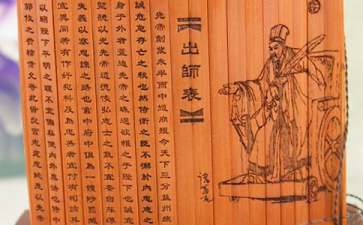 【出師表】
先帝創業未半而中道崩殂今天下三分益州疲
誠危急存亡之秋也然侍衛之臣不懈於內忠志之
身于外者蓋追先帝之殊遇欲報之于陛下也誠宜
聖聽以光先帝遺德恢弘志士之氣不宜妄自菲薄
失義以塞忠諫之路也宮中府中俱為一體陟罰臧
宜異同若有作奸犯科及為忠善者宜付有司論其
以昭陛下平明之理不宜偏私使內外異法也侍中
郭攸之費禕董允等此皆良實志慮忠純是以先帝
諸葛亮